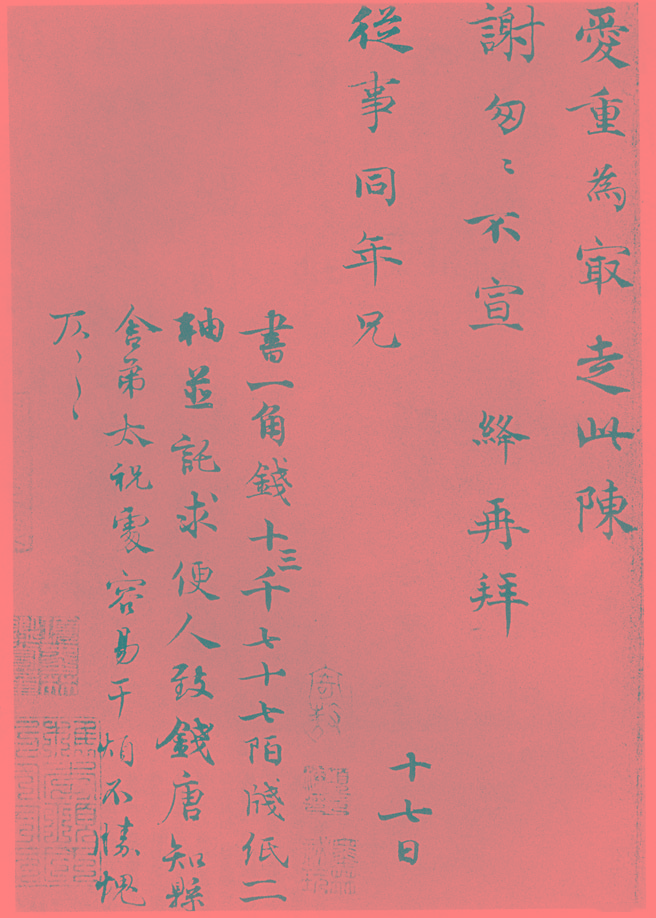 愛重為㝡走此陳
謝匆〻不宣 絳再拜
從事同年兄
十七日
書一角錢十三千七十七陌牋紙二
軸並託求便人致錢唐知縣
舍弟太祝處容易干煩不勝愧
仄〻